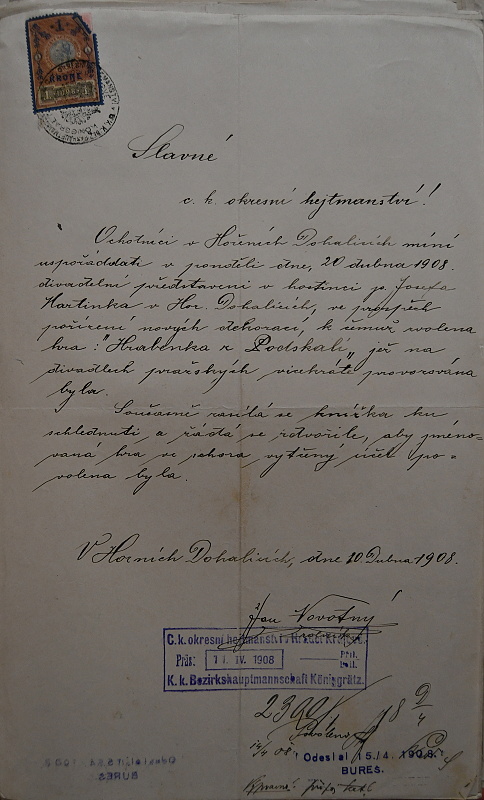 KRONE
1 1908 1
Slavné
c. k. okresní hejtmanství!
Ochotníci v Hořeních Dohalicích míní
uspořáddati v pondělí dne, 20 dubna 1908.
divadelní představení v hostinci p. Josefa
Martinka v Hor. Dohalicích, ve prospěch
pořízení nových dekorací, k čemuž volena
hra: "Hraběnka z Podskalí„ jež na
divadlech pražských vícekráte provozována
byla.
Současně zasílá se knížka ku
schlednutí a žádá se zdvořile, aby jméno-
vaná hra ve zahora vytčený účel po-
volena byla.
V Horních Dohalicích, dne 10. Dubna 1908.
Jan Novotný
C. k. okresní hejtmanství v Hradci Králové.
Präs: 11. IV. 1908 Příl.
Beil.
K. k. Bezirkshauptmannschaft Königgrätz.
Odeslal 15./4. 1908.
BURES.